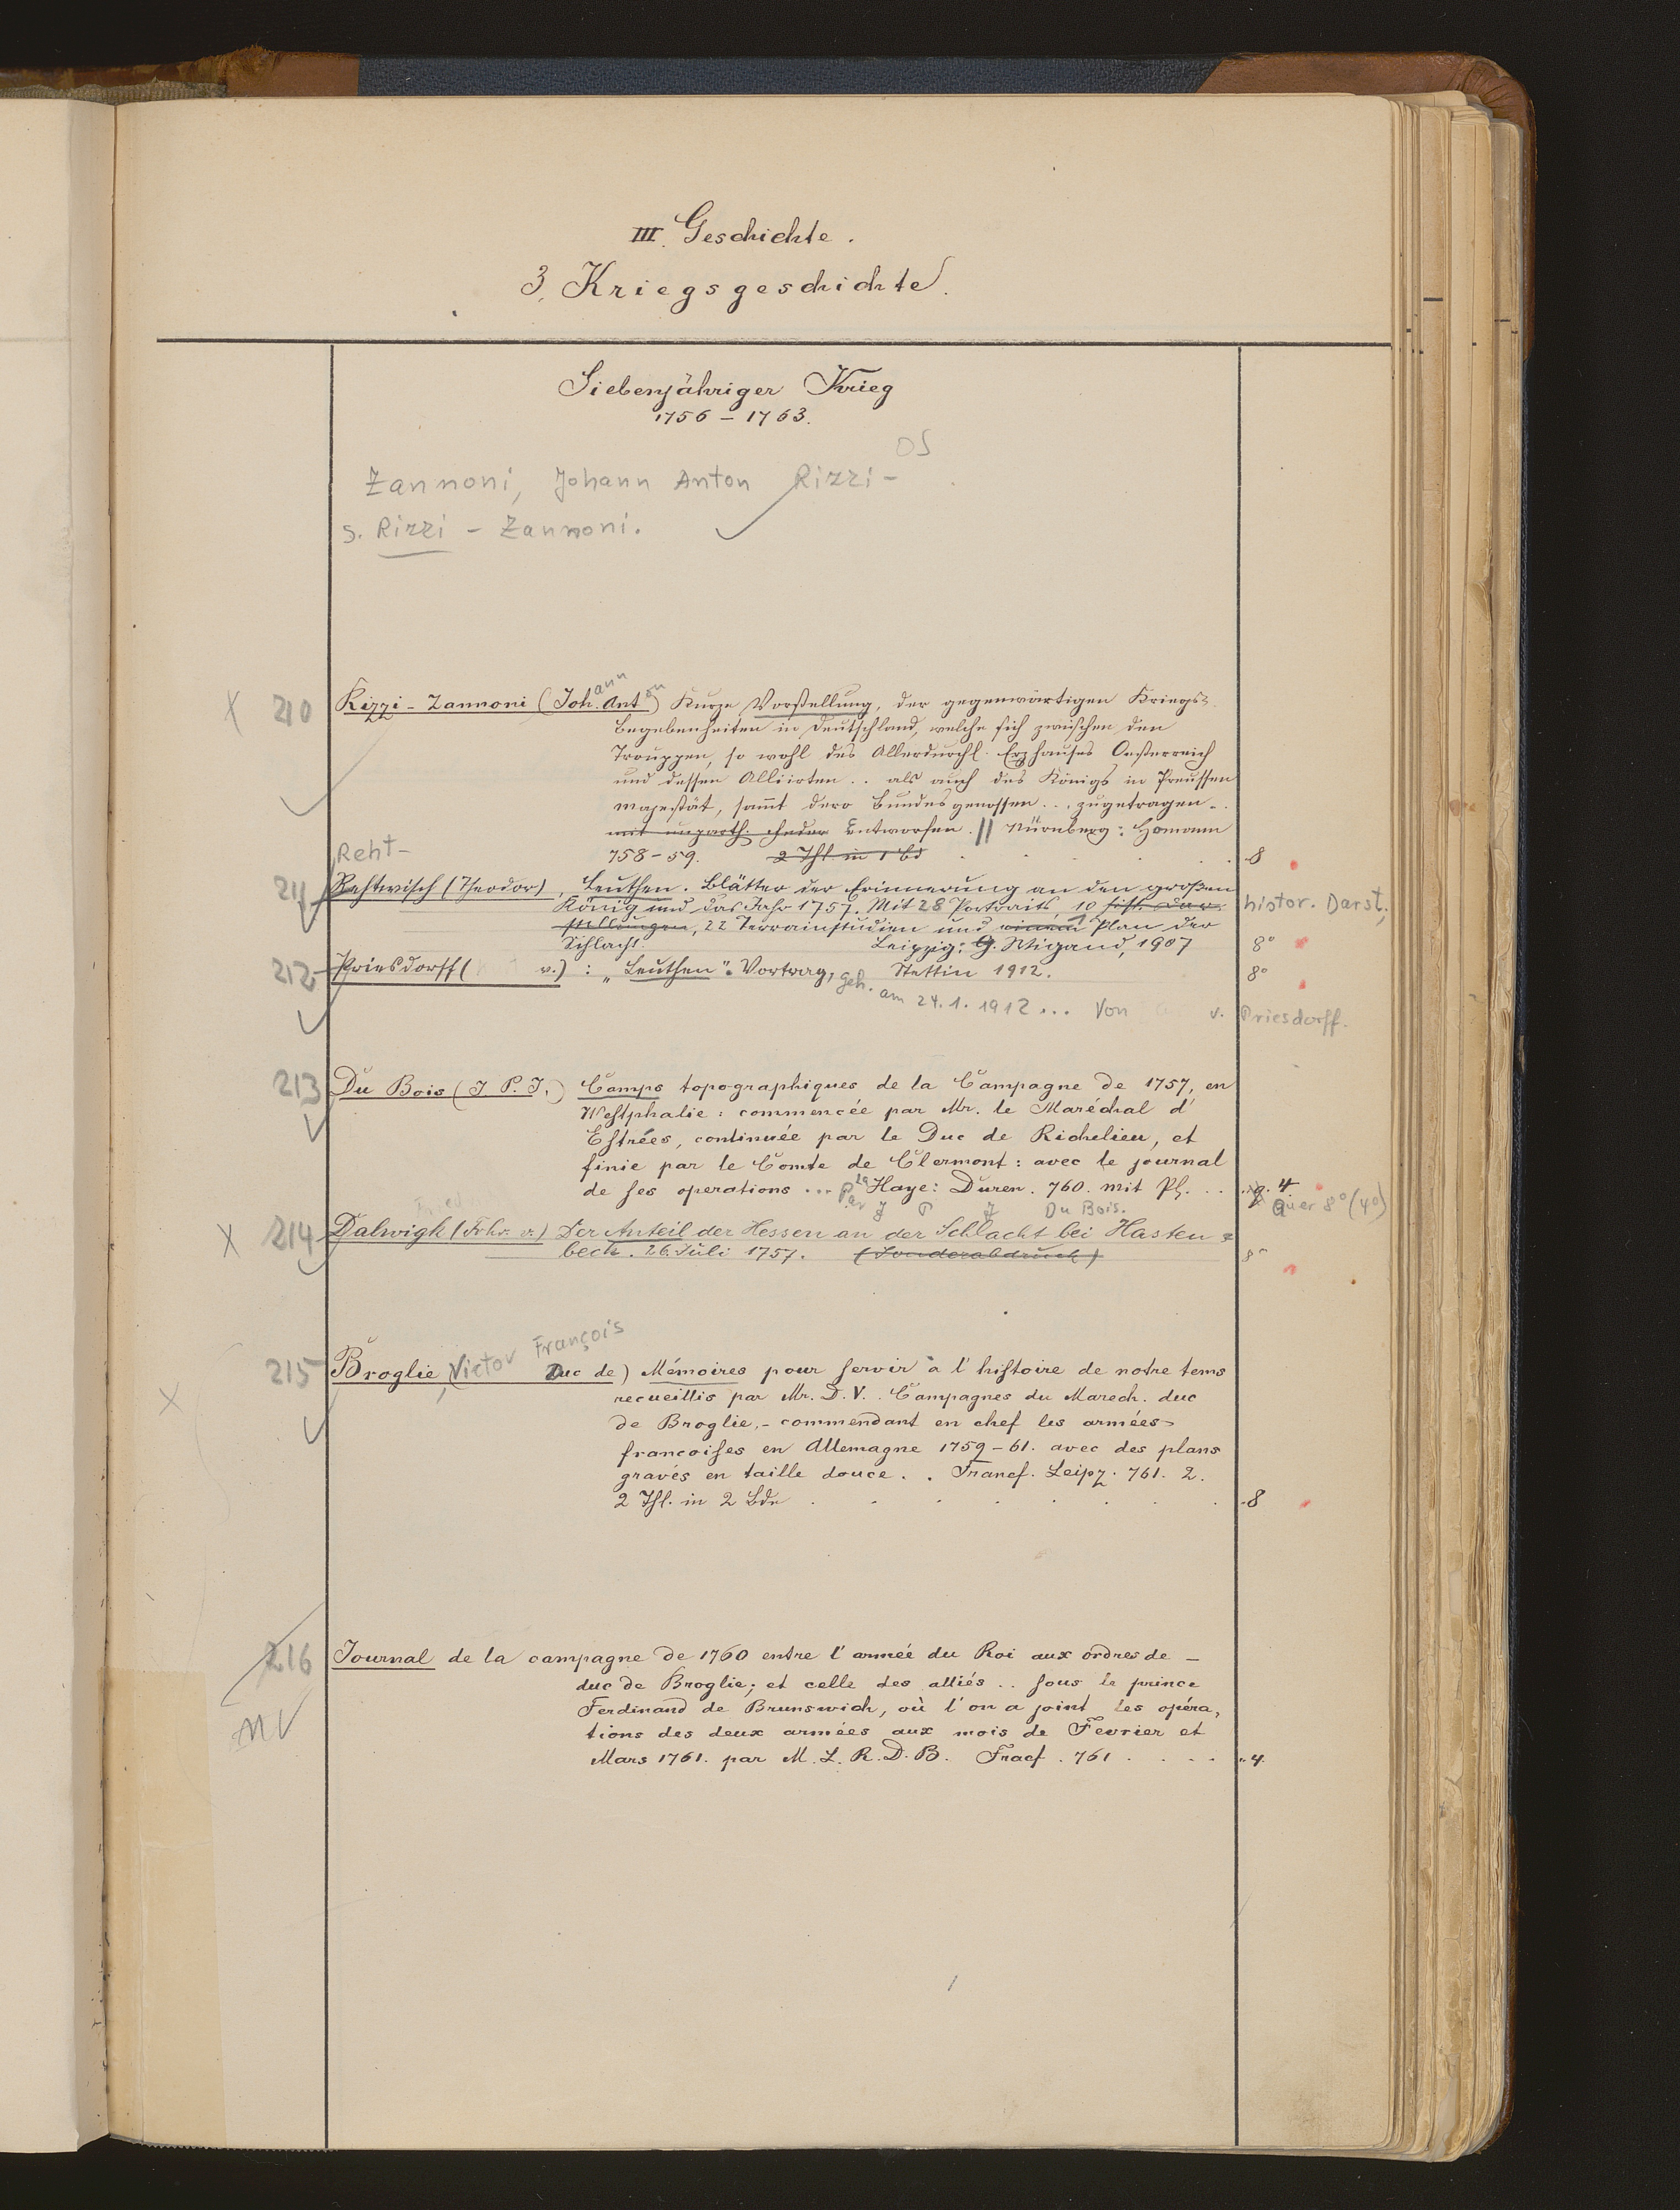 III. Geschichte.
3. Kriegsgeschichte.
Siebenjähriger Krieg
1756 – 1763.
OS
Zannoni, Johann Anton Rizzi-
s. Rizzi - Zannoni.
X 210 Rizzi - Zannoni (Johann Anton) Kurze Vorstellung, der gegenwärtigen Kriegs-
Begebenheiten in Deutschland, welche sich zwischen den
Trouppen, so wohl des Allerdurchl. Erzhauses Oesterreich
und dessen Alliirten .. als auch des Königs in Preussen
Majestät, sammt dero Bundesgenossen ... zugetragen ..
mit unparth. Feder Entworfen. || Nürnberg: Homann
758-59. 2 Thl. in 1 Bd . . . . 8
Reht-
211 Rehtwisch (Theodor), Leuthen. Blätter der Erinnerung an den großen
König und das Jahr 1757. Mit 28 Portraits, 10 hist. Dar- histor. Darst.,
stellungen, 22 Terrainstudien und einem 1 Plan der
Schlacht. Leipzig: G. Wigand, 1907 8°
212 Priesdorff ( v.) : „Leuthen". Vortrag, Stettin 1912. 8°
geh. am 24.1.1912 ... Von v. Priesdorff.
213 Du Bois (J. P. J.) Camps topographiques de la Campagne de 1757, en
Westphalie: commencée par Mr. le Maréchal d'
Estrées, continuée par le Duc de Richelieu, et
finie par le Comte de Clermont: avec le journal
de ses operations ... la Haye: Duren. 760. mit Pl. .. q. 4.
Par J P J Du Bois. Quer 8° (4°)
X 214 Dalwigk (Frhr. v.) Der Anteil der Hessen an der Schlacht bei Hasten-
beck. 26. Juli 1757. (Sonderabdruck) 8°
215 Broglie, (Victor François Duc de) Mémoires pour servir à l'histoire de notre tems
X recueillis par Mr. D. V. . Campagnes du Marech. duc
de Broglie, - commendant en chef les armées
francoises en Allemagne 1759-61. avec des plans
gravés en taille douce . . Francf. Leipz. 761. 2.
2 Thl. in 2 Bde . . . . . . 8
216 Journal de la campagne de 1760 entre l'armée du Roi aux ordres de -
duc de Broglie; et celle des alliés .. sous le prince
NV Ferdinand de Brunswich, où l'on a joint les opéra,
tions des deux armées aux mois de Fevrier et
Mars 1761. par M. L. R. D. B. Fracf. 761 . . . . 4.